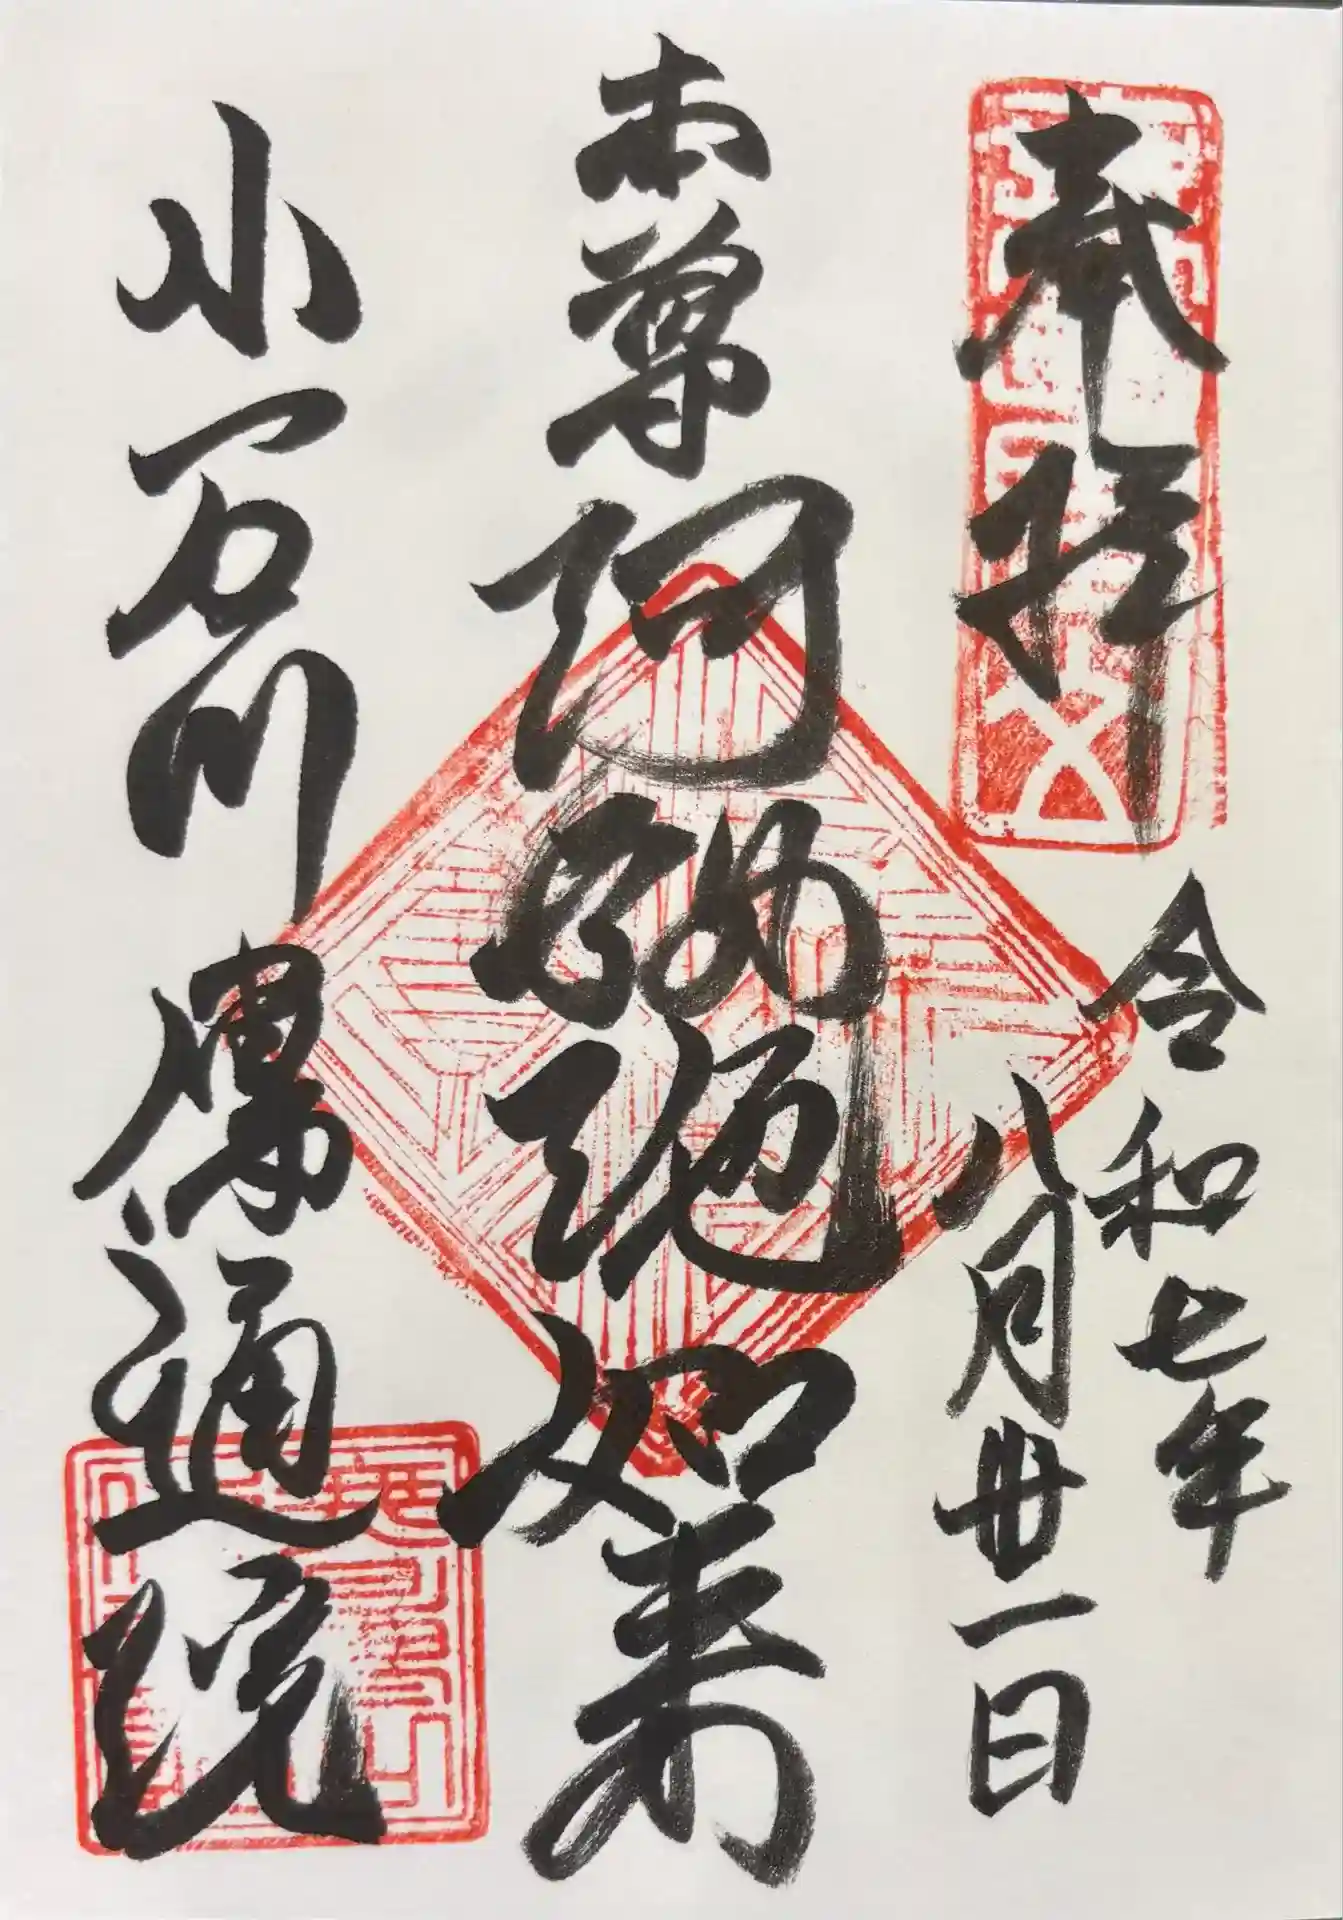 奉拝
令和七年
八月廿一日
本尊阿弥陀如来
小石川傳通院